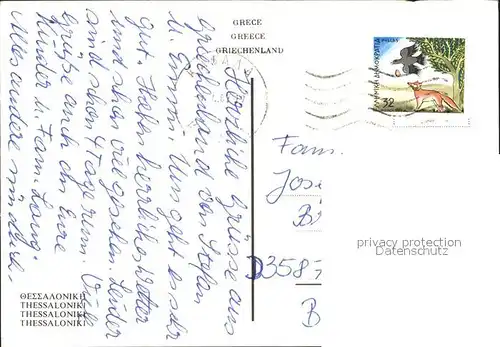 GRECE
GREECE
GRIECHENLAND
Herzliche Grüsse aus
Griechenland von Stefan
u. Emmi. Uns geht es sehr
gut. Haben herrliches Wetter
und schon viel gesehen. Leider
sind schon 4 Tage rum. Viele
Grüße auch an Eure
Kinder u. Fam. Lang.
Alles andere mündlich.
ΘΕΣΣΑΛΟΝΙΚΗ
THESSALONIKI
THESSALONIKI
THESSALONIKI
ΕΛΛΗΝΙΚΗ ΔΗΜΟΚΡΑΤΙΑ
HELLAS
32
Fam.
Jose
D358
B
privacy protection
Datenschutz